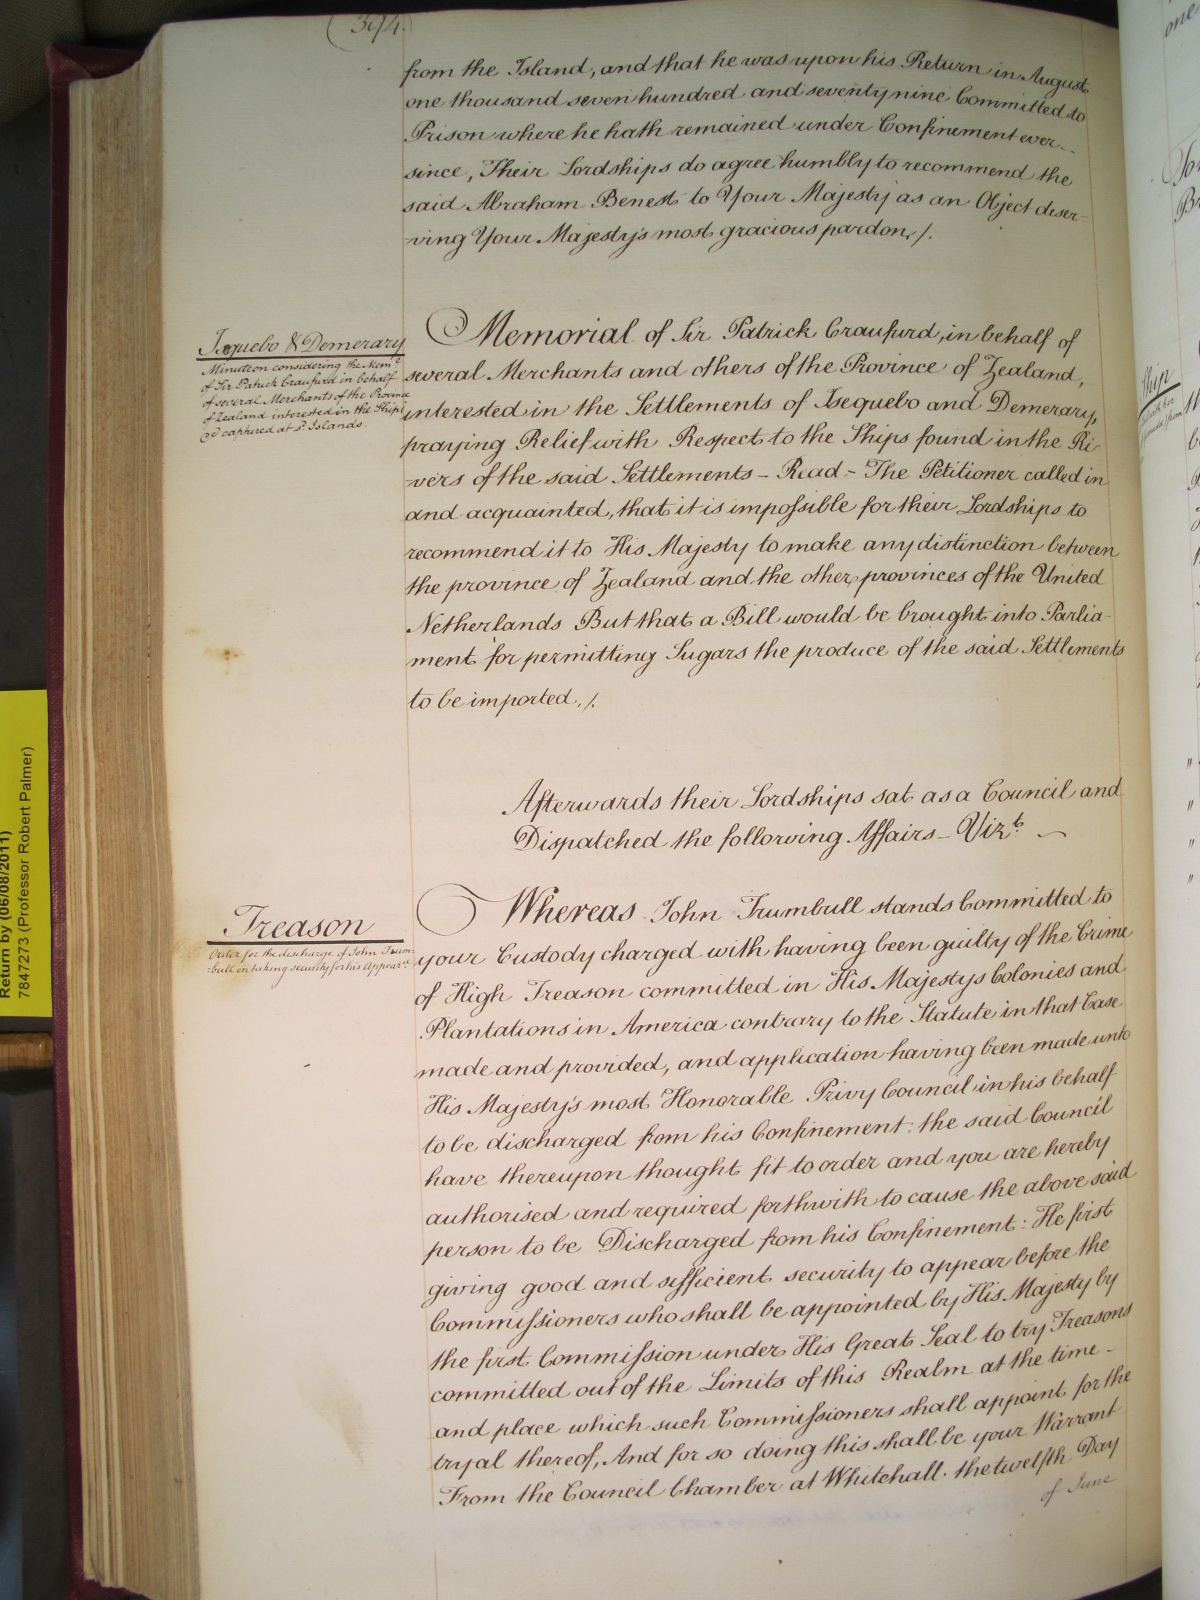 (394.)
from the Island, and that he was upon his Return in August
one thousand seven hundred and seventy nine Committed to
Prison where he hath remained under Confinement ever--
since, Their Lordships do agree humbly to recommend the
said Abraham Benest to Your Majesty as an Object deser-
-ving Your Majesty's most gracious pardon./.
Isequebo & Demerary
Minute on considering the Mem.l
of Sir Patrick Craufurd in behalf
of several Merchants of the Province
of Zealand interested in the Ships
&c captured at s.d Islands.
Memorial of Sir Patrick Craufurd, in behalf of
several Merchants and others of the Province of Zealand,
interested in the Settlements of Isequebo and Demerary,
praying Relief with Respect to the Ships found in the Ri-
-vers of the said Settlements - Read - The Petitioner called in
and acquainted, that it is impossible for their Lordships to
recommend it to His Majesty to make any distinction between
the province of Zealand and the other provinces of the United
Netherlands But that a Bill would be brought into Parlia-
ment for permitting Sugars the produce of the said Settlements
to be imported./.
Afterwards their Lordships sat as a Council and
Dispatched the following Affairs - Vizt.
Treason
Order for the discharge of John Trum-
-bull on taking security for his Appear.ce
Whereas John Trumbull stands Committed to
your Custody charged with having been guilty of the Crime
of High Treason committed in His Majestys Colonies and
Plantations in America contrary to the Statute in that Case
made and provided, and application having been made unto
His Majesty's most Honorable Privy Council in his behalf
to be discharged from his Confinement: the said Council
have thereupon thought fit to order and you are hereby
authorised and required forthwith to cause the above said
person to be Discharged from his Confinement: He first
giving good and sufficient security to appear before the
Commissioners who shall be appointed by His Majesty by
the first Commission under His Great Seal to try Treasons
committed out of the Limits of this Realm at the time -
and place which such Commissioners shall appoint for the
tryal thereof, And for so doing this shall be your Warrant
From the Council Chamber at Whitehall. the twelfth Day
of June
Return by (06/08/2011)
7847273 (Professor Robert Palmer)
one
Ship